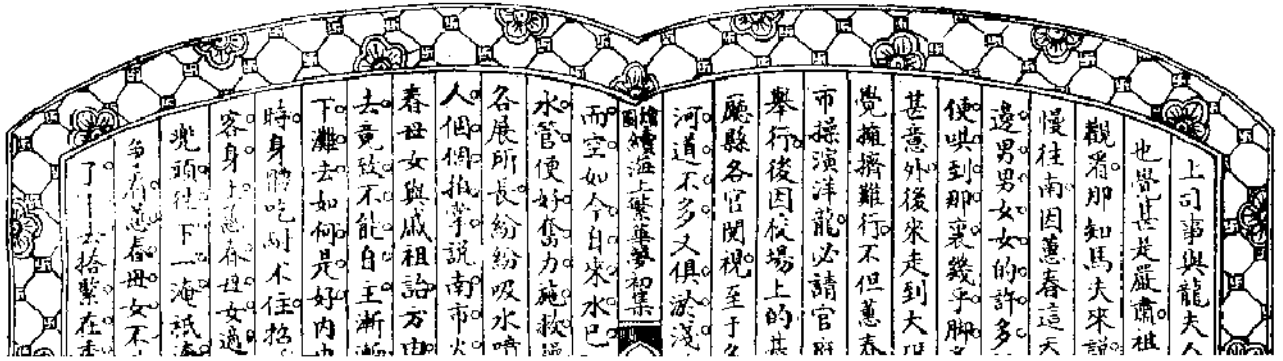 上司事與龍夫人
也覺甚是嚴肅祖
觀看那知馬夫來説
慢往南因蕙春這天
邊男男女女的許多
便哄到那裏幾乎脚
甚意外後來走到大
覺擁擠難行不但蕙春
市操演洋龍必請官府
舉行後因校場上的基
廳縣各官閱視至于
河道不多又俱淤淺
繪圖續海上繁華夢初集
而空如今自來水已
水管便好奮力施救
各展所長紛紛吸水
人個個拍掌説南市火
春母女與戚祖詒方由
去竟致不能自主漸漸
下灘去如何是好内中
時身體吃耐不住
客身子蕙春母女適
兜頭往下一淹
蕙春母女不
了丁去拾緊在